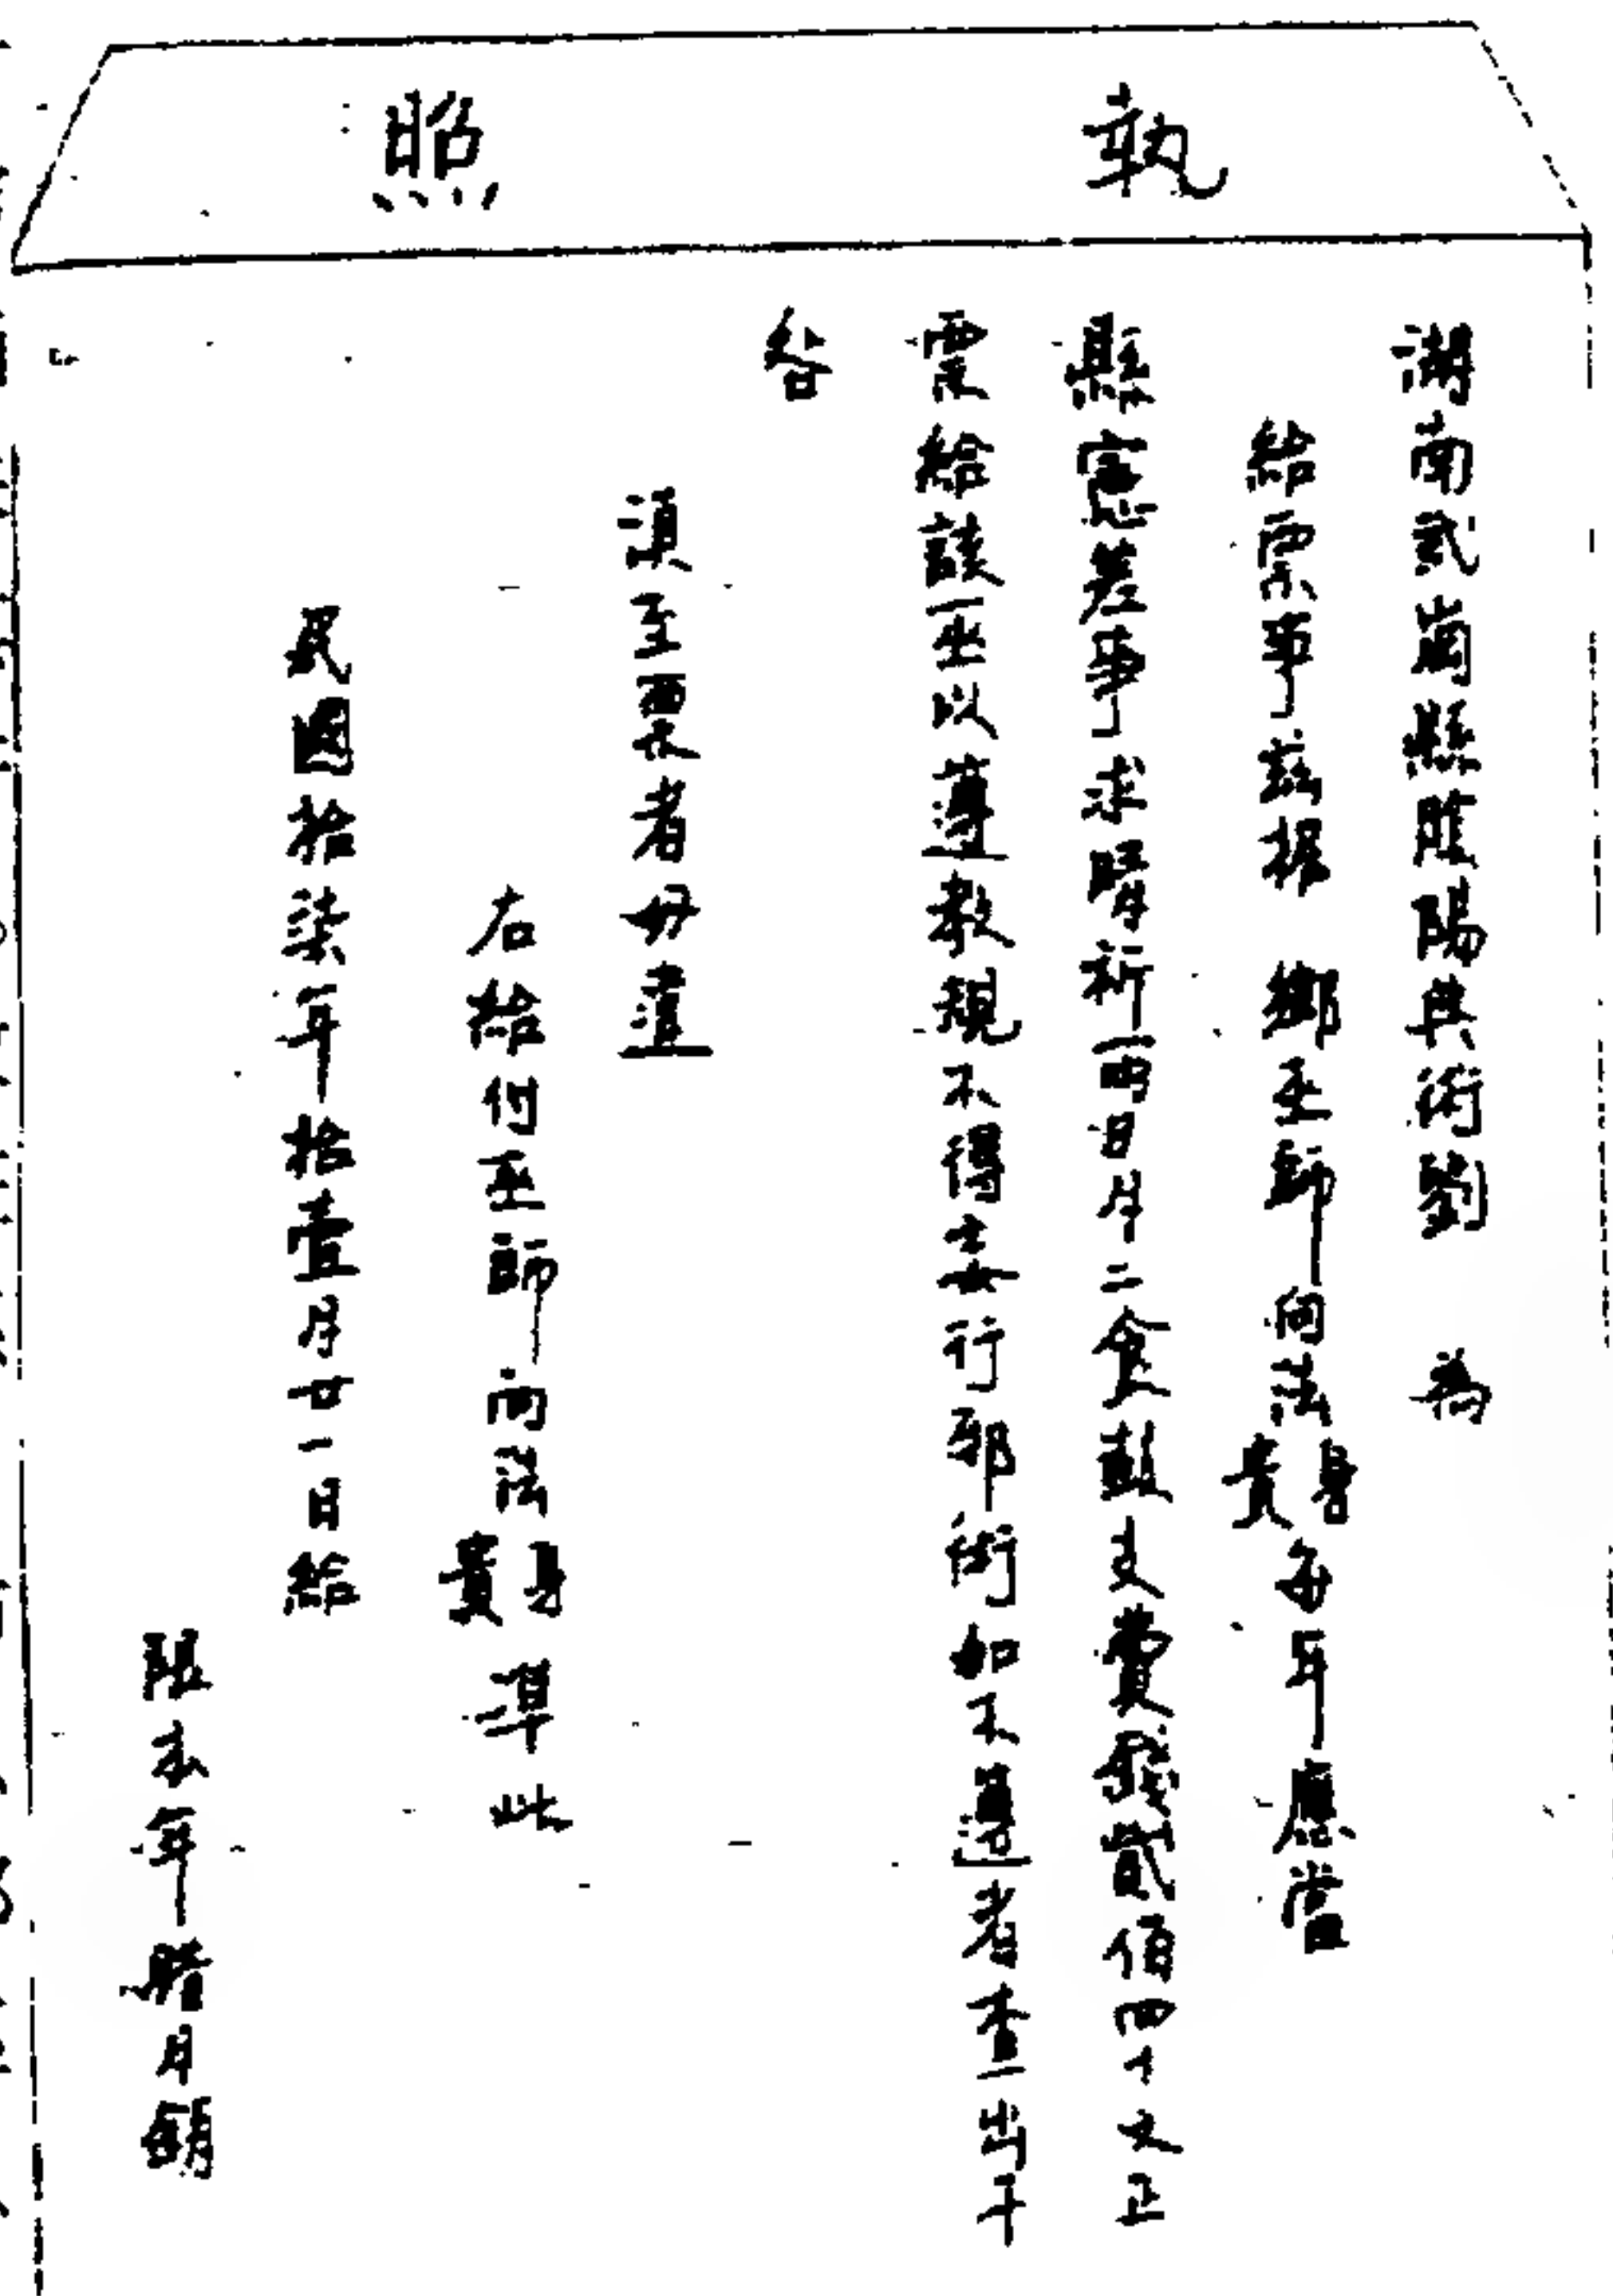 執照
湖南武岡縣陰陽典術劉 為
給票事茲據 鄉巫師向法貴身每年應當
縣憲差事求晴祈雨日月二食鼓支費錢貳佰四十文正
票給該巫以遵教規不得妄行邪術如不遵者查出干
咎
須至票者毋違
右給付巫師向法貴身準此
民國拾柒年拾壹月廿一日給
限本年腊月繳